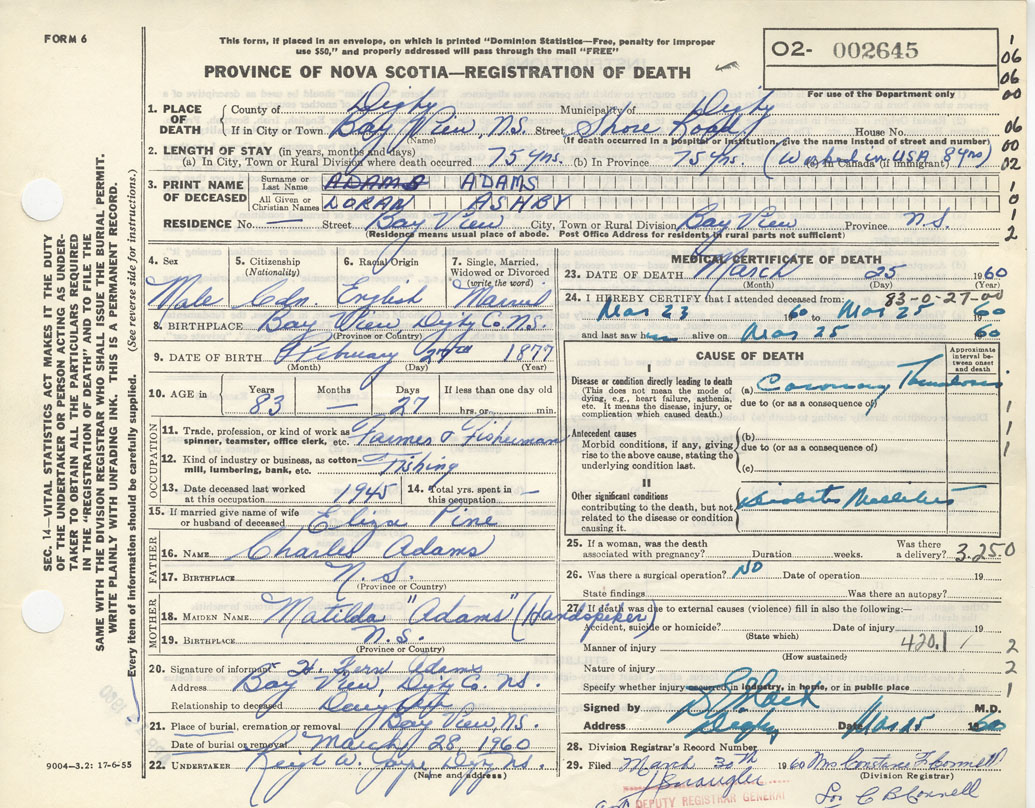 FORM 6
This form, if placed in an envelope, on which is printed "Dominion Statistics—Free, penalty for improper
use $50," and properly addressed will pass through the mail "FREE"
PROVINCE OF NOVA SCOTIA—REGISTRATION OF DEATH
O2- 002645
For use of the Department only
1
06
06
00
06
00
02
1
0
1
2
SEC. 14—VITAL STATISTICS ACT MAKES IT THE DUTY
OF THE UNDERTAKER OR PERSON ACTING AS UNDER-
TAKER TO OBTAIN ALL THE PARTICULARS REQUIRED
IN THE "REGISTRATION OF DEATH" AND TO FILE THE
SAME WITH THE DIVISION REGISTRAR WHO SHALL ISSUE THE BURIAL PERMIT.
WRITE PLAINLY WITH UNFADING INK. THIS IS A PERMANENT RECORD.
Every item of information should be carefully supplied. (See reverse side for instructions.)
1. PLACE OF DEATH County of Digby Municipality of Digby
If in City or Town Bay View, N.S. Street Shore Road House No.
(Name) (If death occurred in a hospital or institution, give the name instead of street and number)
2. LENGTH OF STAY (in years, months and days)
(a) In City, Town or Rural Division where death occurred 75 yrs. (b) In Province 75 yrs. (c) In Canada (if immigrant) (Worked in USA 8 yrs)
3. PRINT NAME OF DECEASED Surname or Last Name ADAMS ADAMS
All Given or Christian Names LORAN ASHBY
RESIDENCE No. — Street Bay View City, Town or Rural Division Bay View Province N.S.
(Residence means usual place of abode. Post Office Address for residents in rural parts not sufficient)
4. Sex 5. Citizenship (Nationality) 6. Racial Origin 7. Single, Married, Widowed or Divorced (write the word)
Male Cdn. English Married
8. BIRTHPLACE Bay View, Digby Co. N.S.
(Province or Country)
9. DATE OF BIRTH February 27th 1877
(Month) (Day) (Year)
10. AGE in Years Months Days If less than one day old
83 — 27 hrs. or min.
OCCUPATION
11. Trade, profession, or kind of work as spinner, teamster, office clerk, etc. Farmer & Fisherman
12. Kind of industry or business, as cotton-mill, lumbering, bank, etc. Fishing
13. Date deceased last worked at this occupation 1945 14. Total yrs. spent in this occupation —
15. If married give name of wife or husband of deceased Eliza Pine
FATHER
16. NAME Charles Adams
17. BIRTHPLACE N.S.
(Province or Country)
MOTHER
18. MAIDEN NAME Matilda "Adams" (Handspiker)
19. BIRTHPLACE N.S.
(Province or Country)
20. Signature of informant H. Fern Adams
Address Bay View, Digby Co. N.S.
Relationship to deceased Daughter
21. Place of burial, cremation or removal Bay View N.S.
Date of burial or removal March 28, 1960
22. UNDERTAKER
(Name and address)
9004—3.2: 17-6-55
MEDICAL CERTIFICATE OF DEATH
23. DATE OF DEATH March 25 1960
(Month) (Day) (Year)
24. I HEREBY CERTIFY that I attended deceased from: 83-0-27-00
Mar 23 1960 to Mar 25 1960
and last saw him alive on Mar 25 1960
CAUSE OF DEATH
Approximate interval between onset and death
I
Disease or condition directly leading to death
(This does not mean the mode of dying, e.g., heart failure, asthenia, etc. It means the disease, injury, or complication which caused death.)
(a) Coronary Thrombosis
due to (or as a consequence of)
Antecedent causes
Morbid conditions, if any, giving rise to the above cause, stating the underlying condition last.
(b)
due to (or as a consequence of)
(c)
II
Other significant conditions contributing to the death, but not related to the disease or condition causing it.
Diabetes Mellitus
1
1
1
25. If a woman, was the death associated with pregnancy? Duration weeks. Was there a delivery? 3.25.0
26. Was there a surgical operation? NO Date of operation 19
State findings Was there an autopsy?
27. If death was due to external causes (violence) fill in also the following:—
Accident, suicide or homicide? Date of injury 19
(State which)
Manner of injury 420.1 2
(How sustained)
Nature of injury 2
Specify whether injury occurred in industry, in home, or in public place 1
Signed by M.D.
Address Digby Date Mar 25 1960
28. Division Registrar's Record Number
29. Filed March 30th 1960 Mrs Constance F Connell
(Division Registrar)
DEPUTY REGISTRAR GENERAL